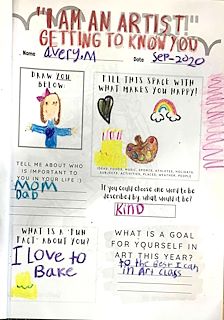 "I AM AN ARTIST!"
GETTING TO KNOW YOU
Name Avery.M Date Sep-2020
DRAW YOU
BELOW:
FILL THIS SPACE WITH
WHAT MAKES YOU HAPPY!
IDEAS: FOODS, MUSIC, SPORTS, ATHLETES, HOLIDAYS,
SUBJECTS, ACTIVITIES, PLACES, WEATHER, PEOPLE
TELL ME ABOUT WHO
IS IMPORTANT TO
YOU IN YOUR LIFE :)
MOM
Dad
If you could choose one word to be
described by what would it be?
KIND
WHAT IS A "FUN
FACT" ABOUT YOU?
I love to
Bake
WHAT IS A GOAL
FOR YOURSELF IN
ART THIS YEAR?
to the Best I can
in Art class